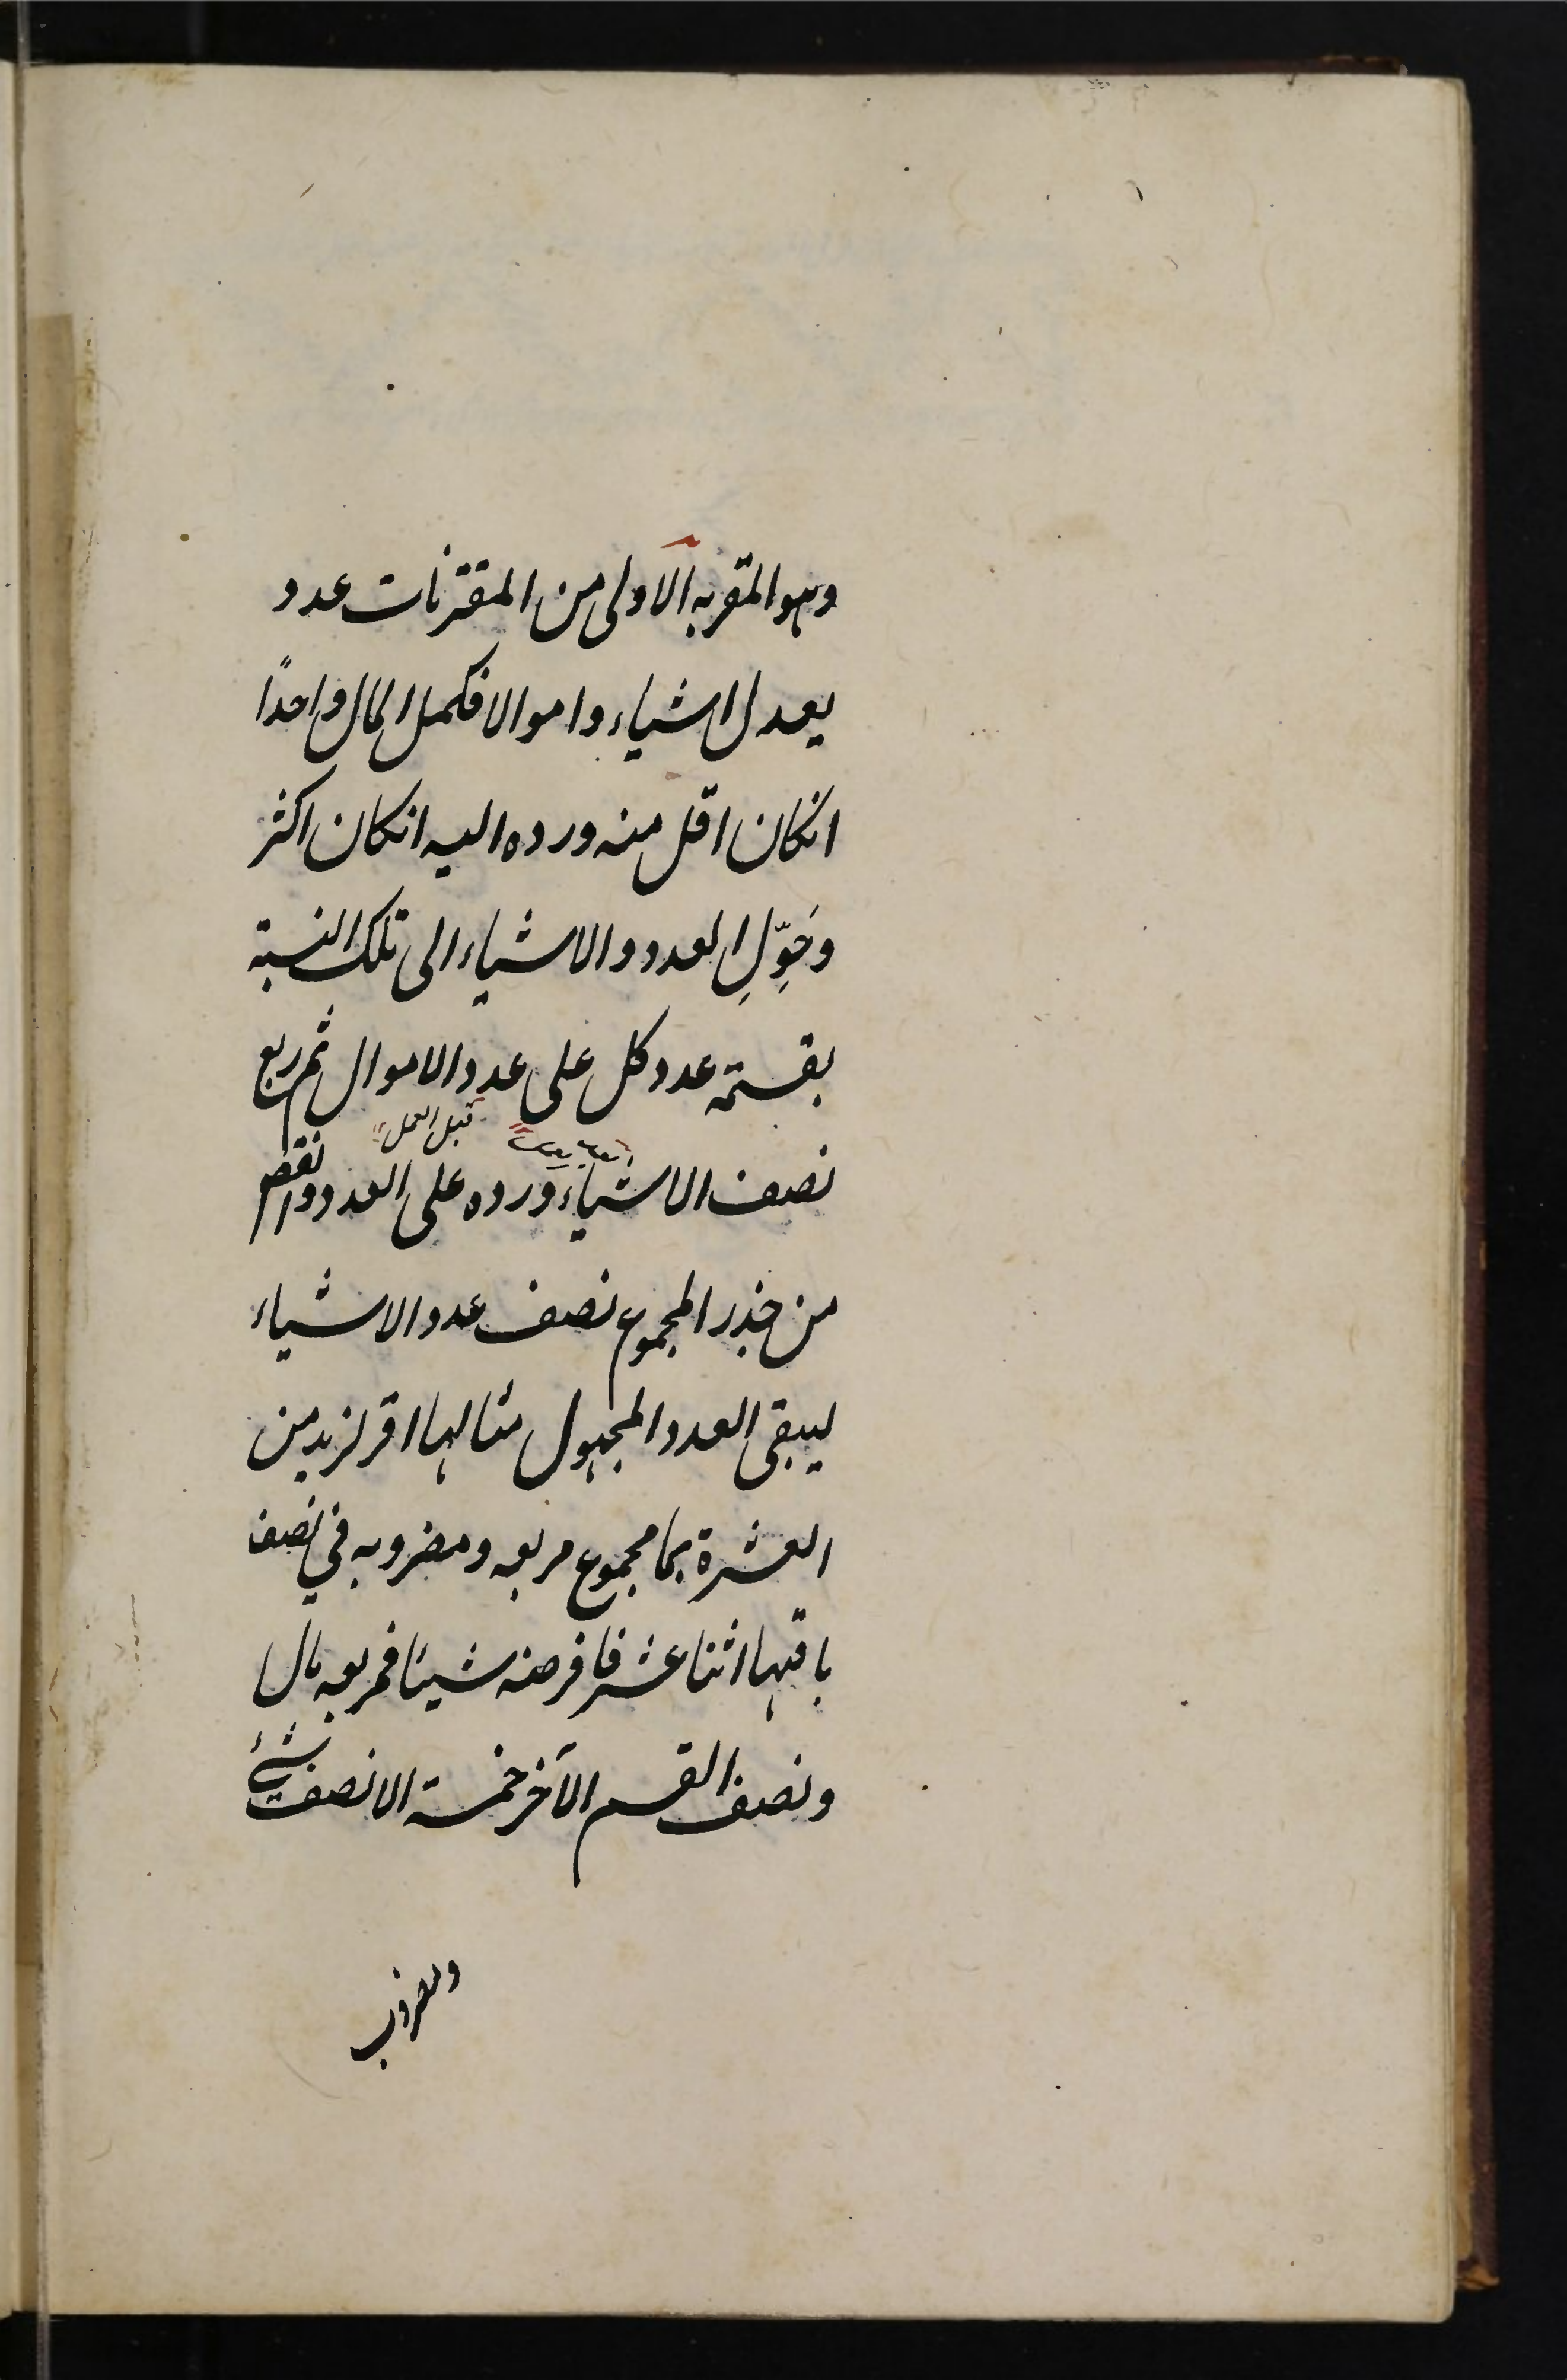 وهو المقربه الاولى من المقترنات عدد
يعدل اشياء واموالا فكمل المال واحدًا
انكان اقل منه ورده اليه انكان اكثر
وحَوِّلِ العدد والاشياء الى تلك النسبة
بقسمة عدد كل على عدد الاموال ثم ربع
قبل العمل
نصف الاشياء ورده على العدد وانقص
من جذر المجموع نصف عدد الاشياء
ليبقى العدد المجهول مثالها اقر لزيد من
العشرة بما مجموع مربعه ومضروبه في نصف
باقيها اثنا عشر فافرضه شيئا فمربعه مال
ونصف القسم الآخر خمسة الا نصف شئ
ومضروب